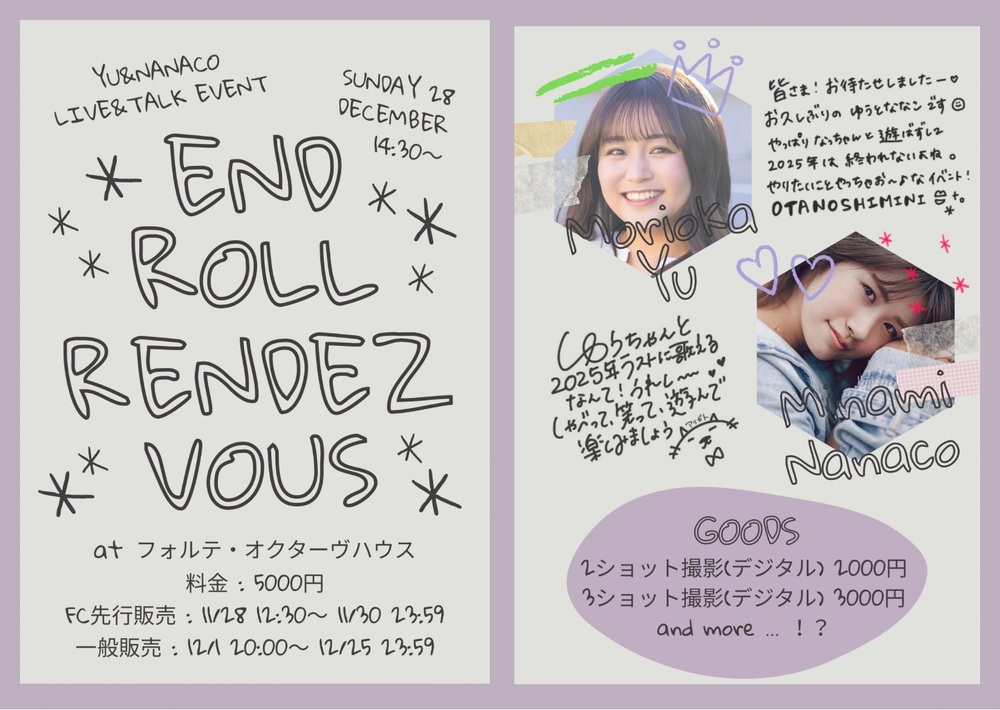 YU&NANACO
LIVE&TALK EVENT
SUNDAY 28
DECEMBER
14:30〜
END
ROLL
RENDEZ
VOUS
at フォルテ・オクターヴハウス
料金：5000円
FC先行販売：11/28 12:30〜 11/30 23:59
一般販売：12/1 20:00〜 12/25 23:59
皆さま！お待たせしましたー♡
お久しぶりの ゆうとななこ です☺
やっぱり なっちゃんと 遊ばずして
2025年は 終われないよね。
やりたいことやっちゃお〜♪な イベント！
OTANOSHIMINI
Morioka
Yu
ゆうちゃんと
2025年ラストに歌える
なんて！うれし〜〜
しゃべって、笑って、遊んで
楽しみましょう
Minami
Nanaco
GOODS
2ショット撮影(デジタル) 2000円
3ショット撮影(デジタル) 3000円
and more … ！？